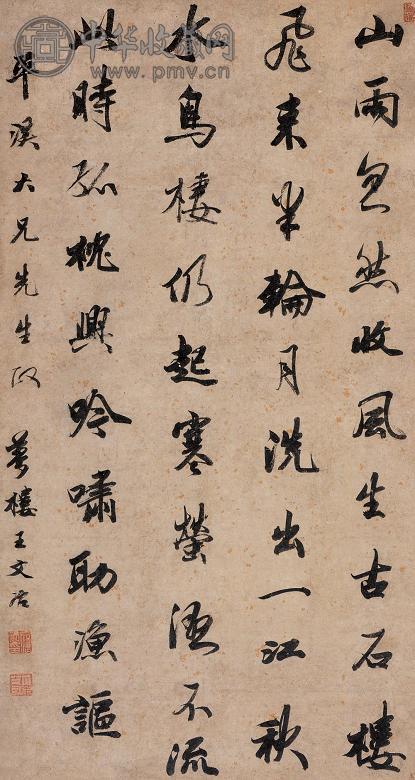 山雨忽然收風生古石樓
飛來半輪月洗出一江秋
水鳥棲仍起寒螢溼不流
此時孤枕興吟嘯助漁謳
溪大兄先生政
夢樓王文治
中华收藏网
www.pmv.cn